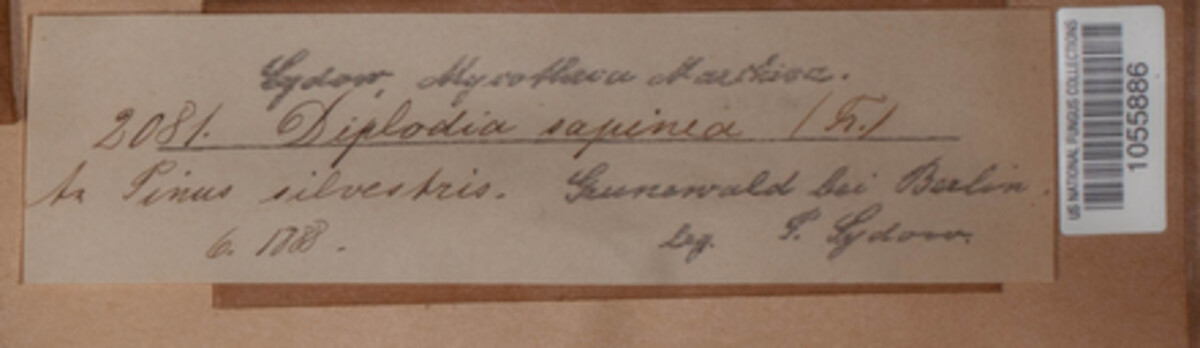 Sydow, Mycotheca Marchica.
2081. Diplodia sapinea (Fr.)
Pinus silvestris. Grunewald bei Berlin.
6. 1888.
leg. P. Sydow.
US NATIONAL FUNGUS COLLECTIONS
01055886